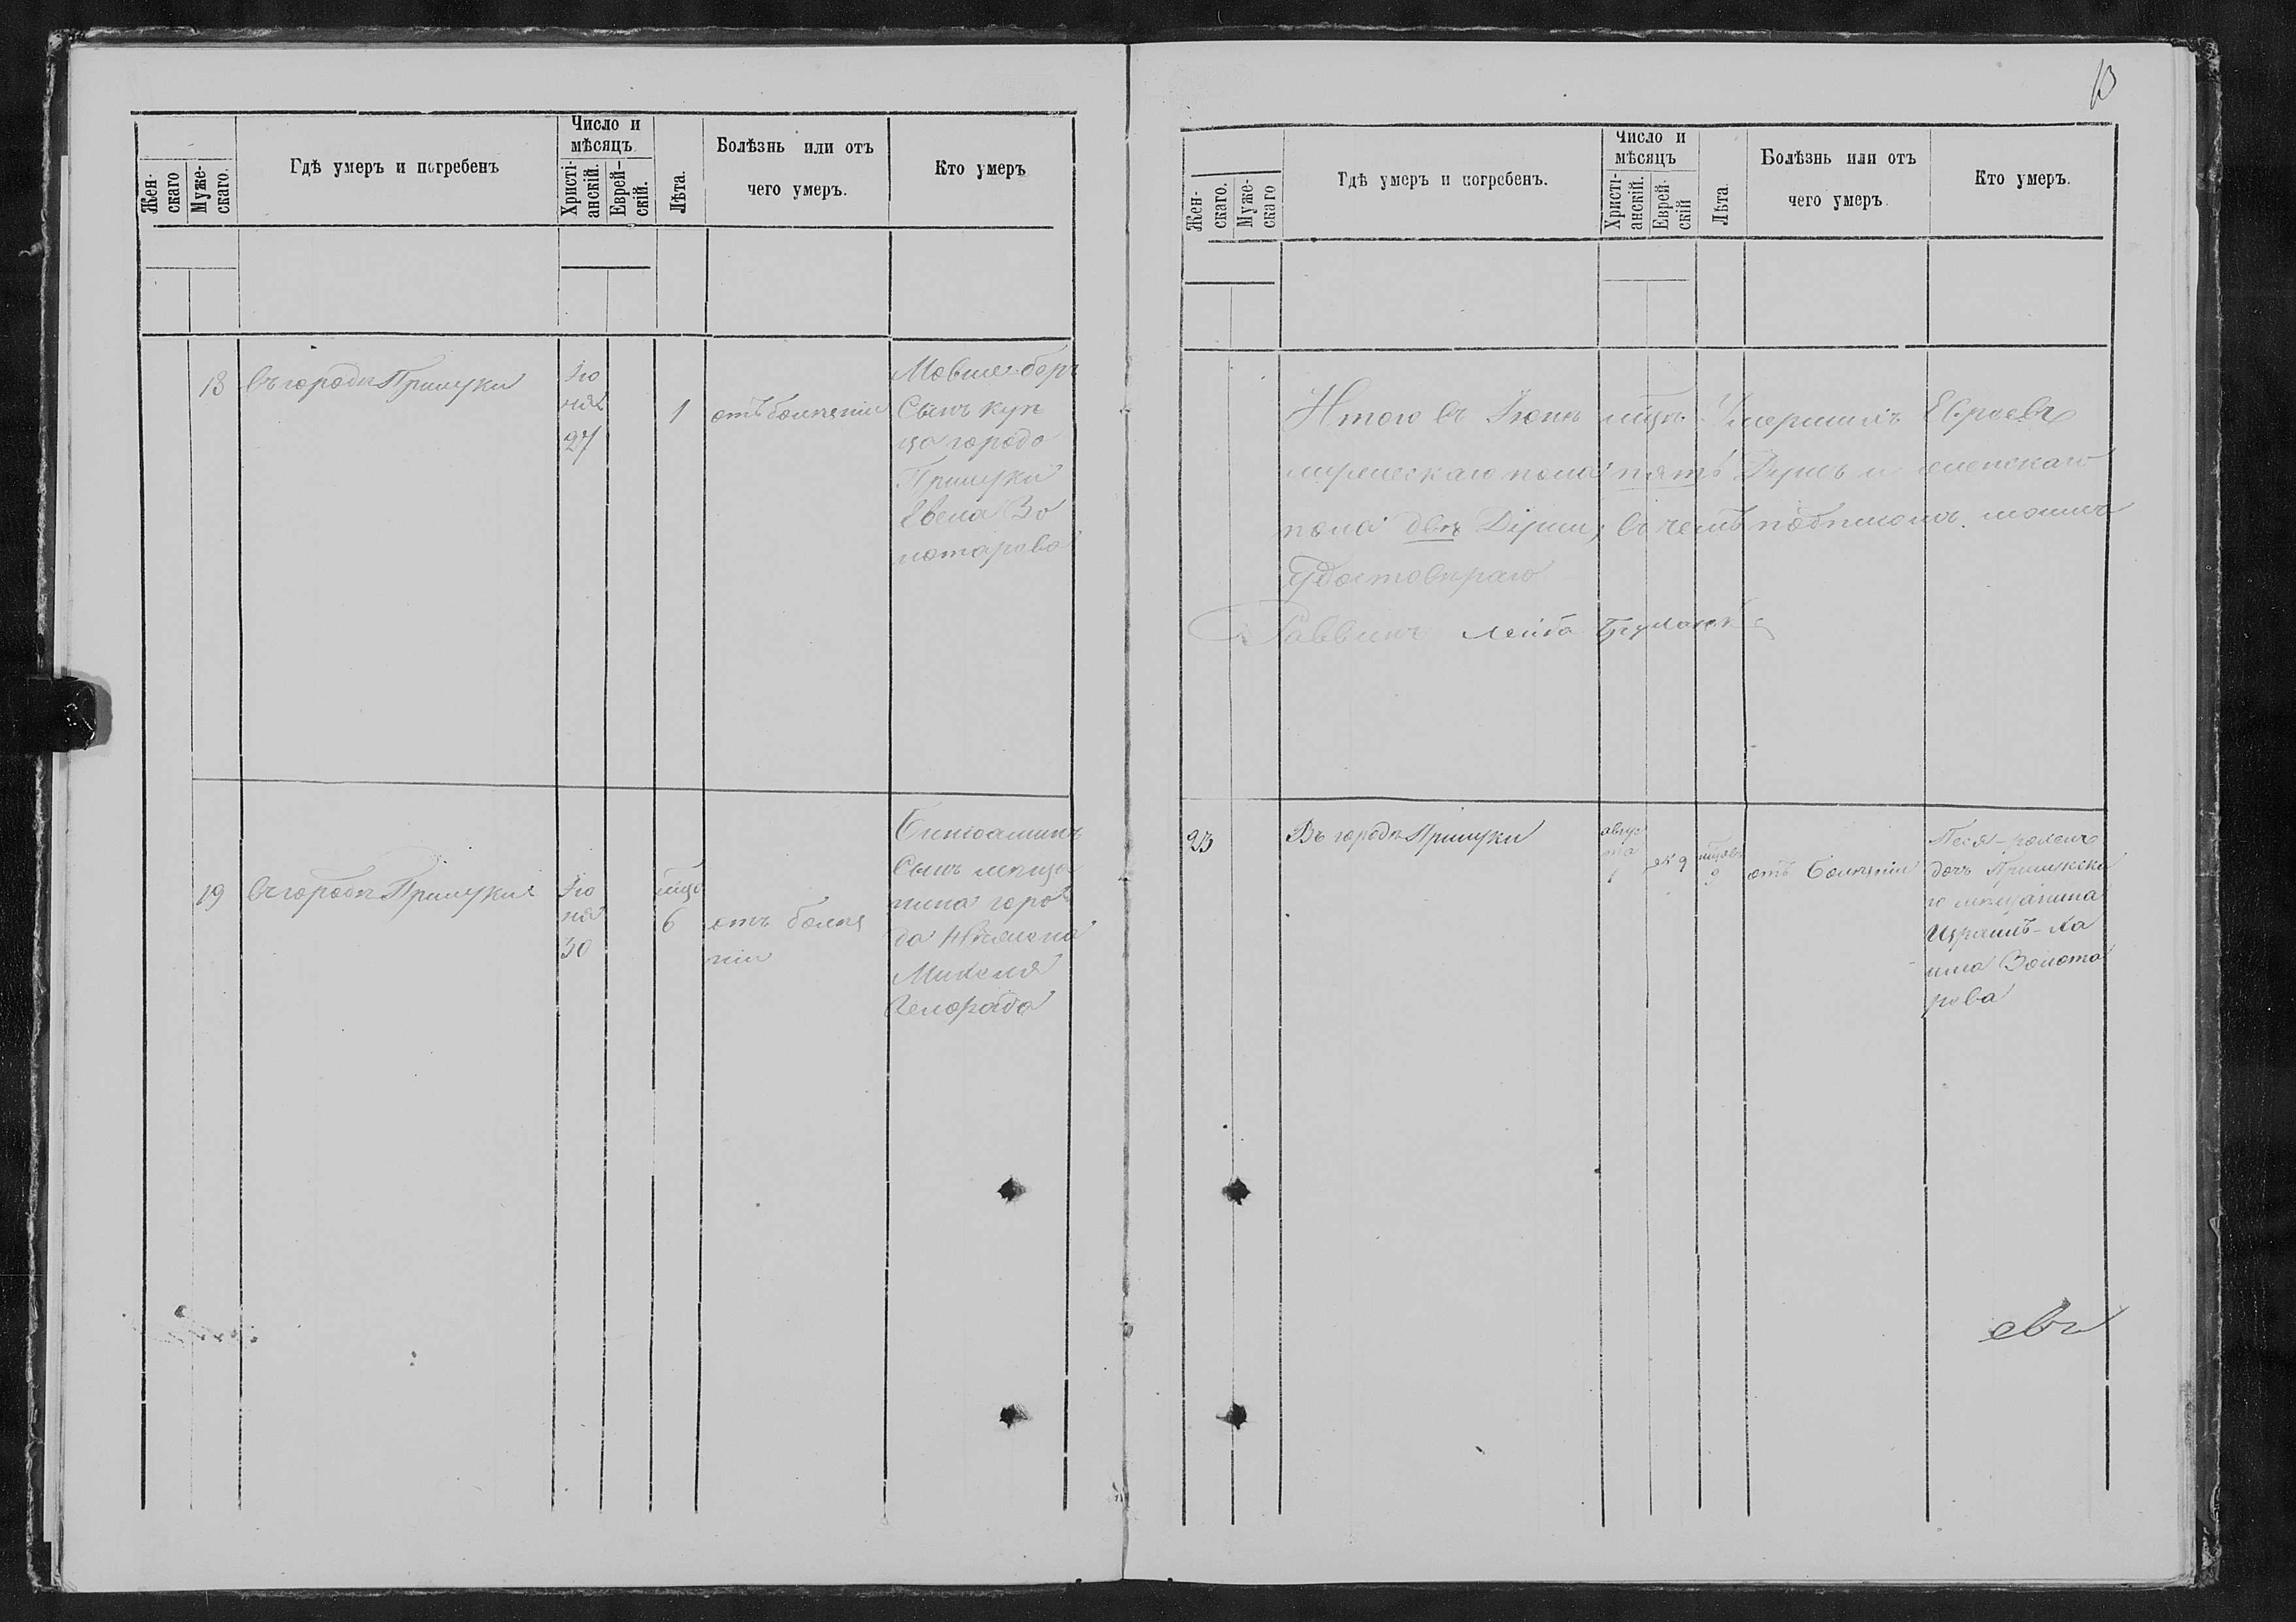 Жен-
скаго
Муже-
скаго.
Гдѣ умеръ и погребенъ
Число и
мѣсяцъ
Христі-
анскій.
Еврей-
скій.
Лѣта.
Болѣзнь или отъ
чего умеръ.
Кто умеръ
18
въ городѣ Прилуки
Iю
ня
27
1
отъ болѣзни
Мовше-Беръ
Сынъ куп
ца города
Прилуки
Евеля Зо
лотарева
19
въ городѣ Прилуки
Iю
ня
30
мѣс
6
отъ болѣз
ніи
Сынъ мѣща
нина горо
да
13
Жен-
скаго.
Муже-
скаго
Гдѣ умеръ и погребенъ.
Число и
мѣсяцъ
Христі-
анскій.
Еврей-
скій
Лѣта.
Болѣзнь или отъ
чего умеръ.
Кто умеръ.
Итого въ Iюнѣ мѣцѣ Умершихъ Евреевъ
мужескаго пола пять Душъ и женскаго
пола двѣ Души, въ чемъ подписомъ моимъ
Удостовѣраю
Раввинъ Лейба
23
Въ городѣ Прилуки
авгус
та
1
9
9
отъ Болѣзни
Песя-
дочь Прилукска
го мѣщанина
Израиль-Ха
има Золота
рева